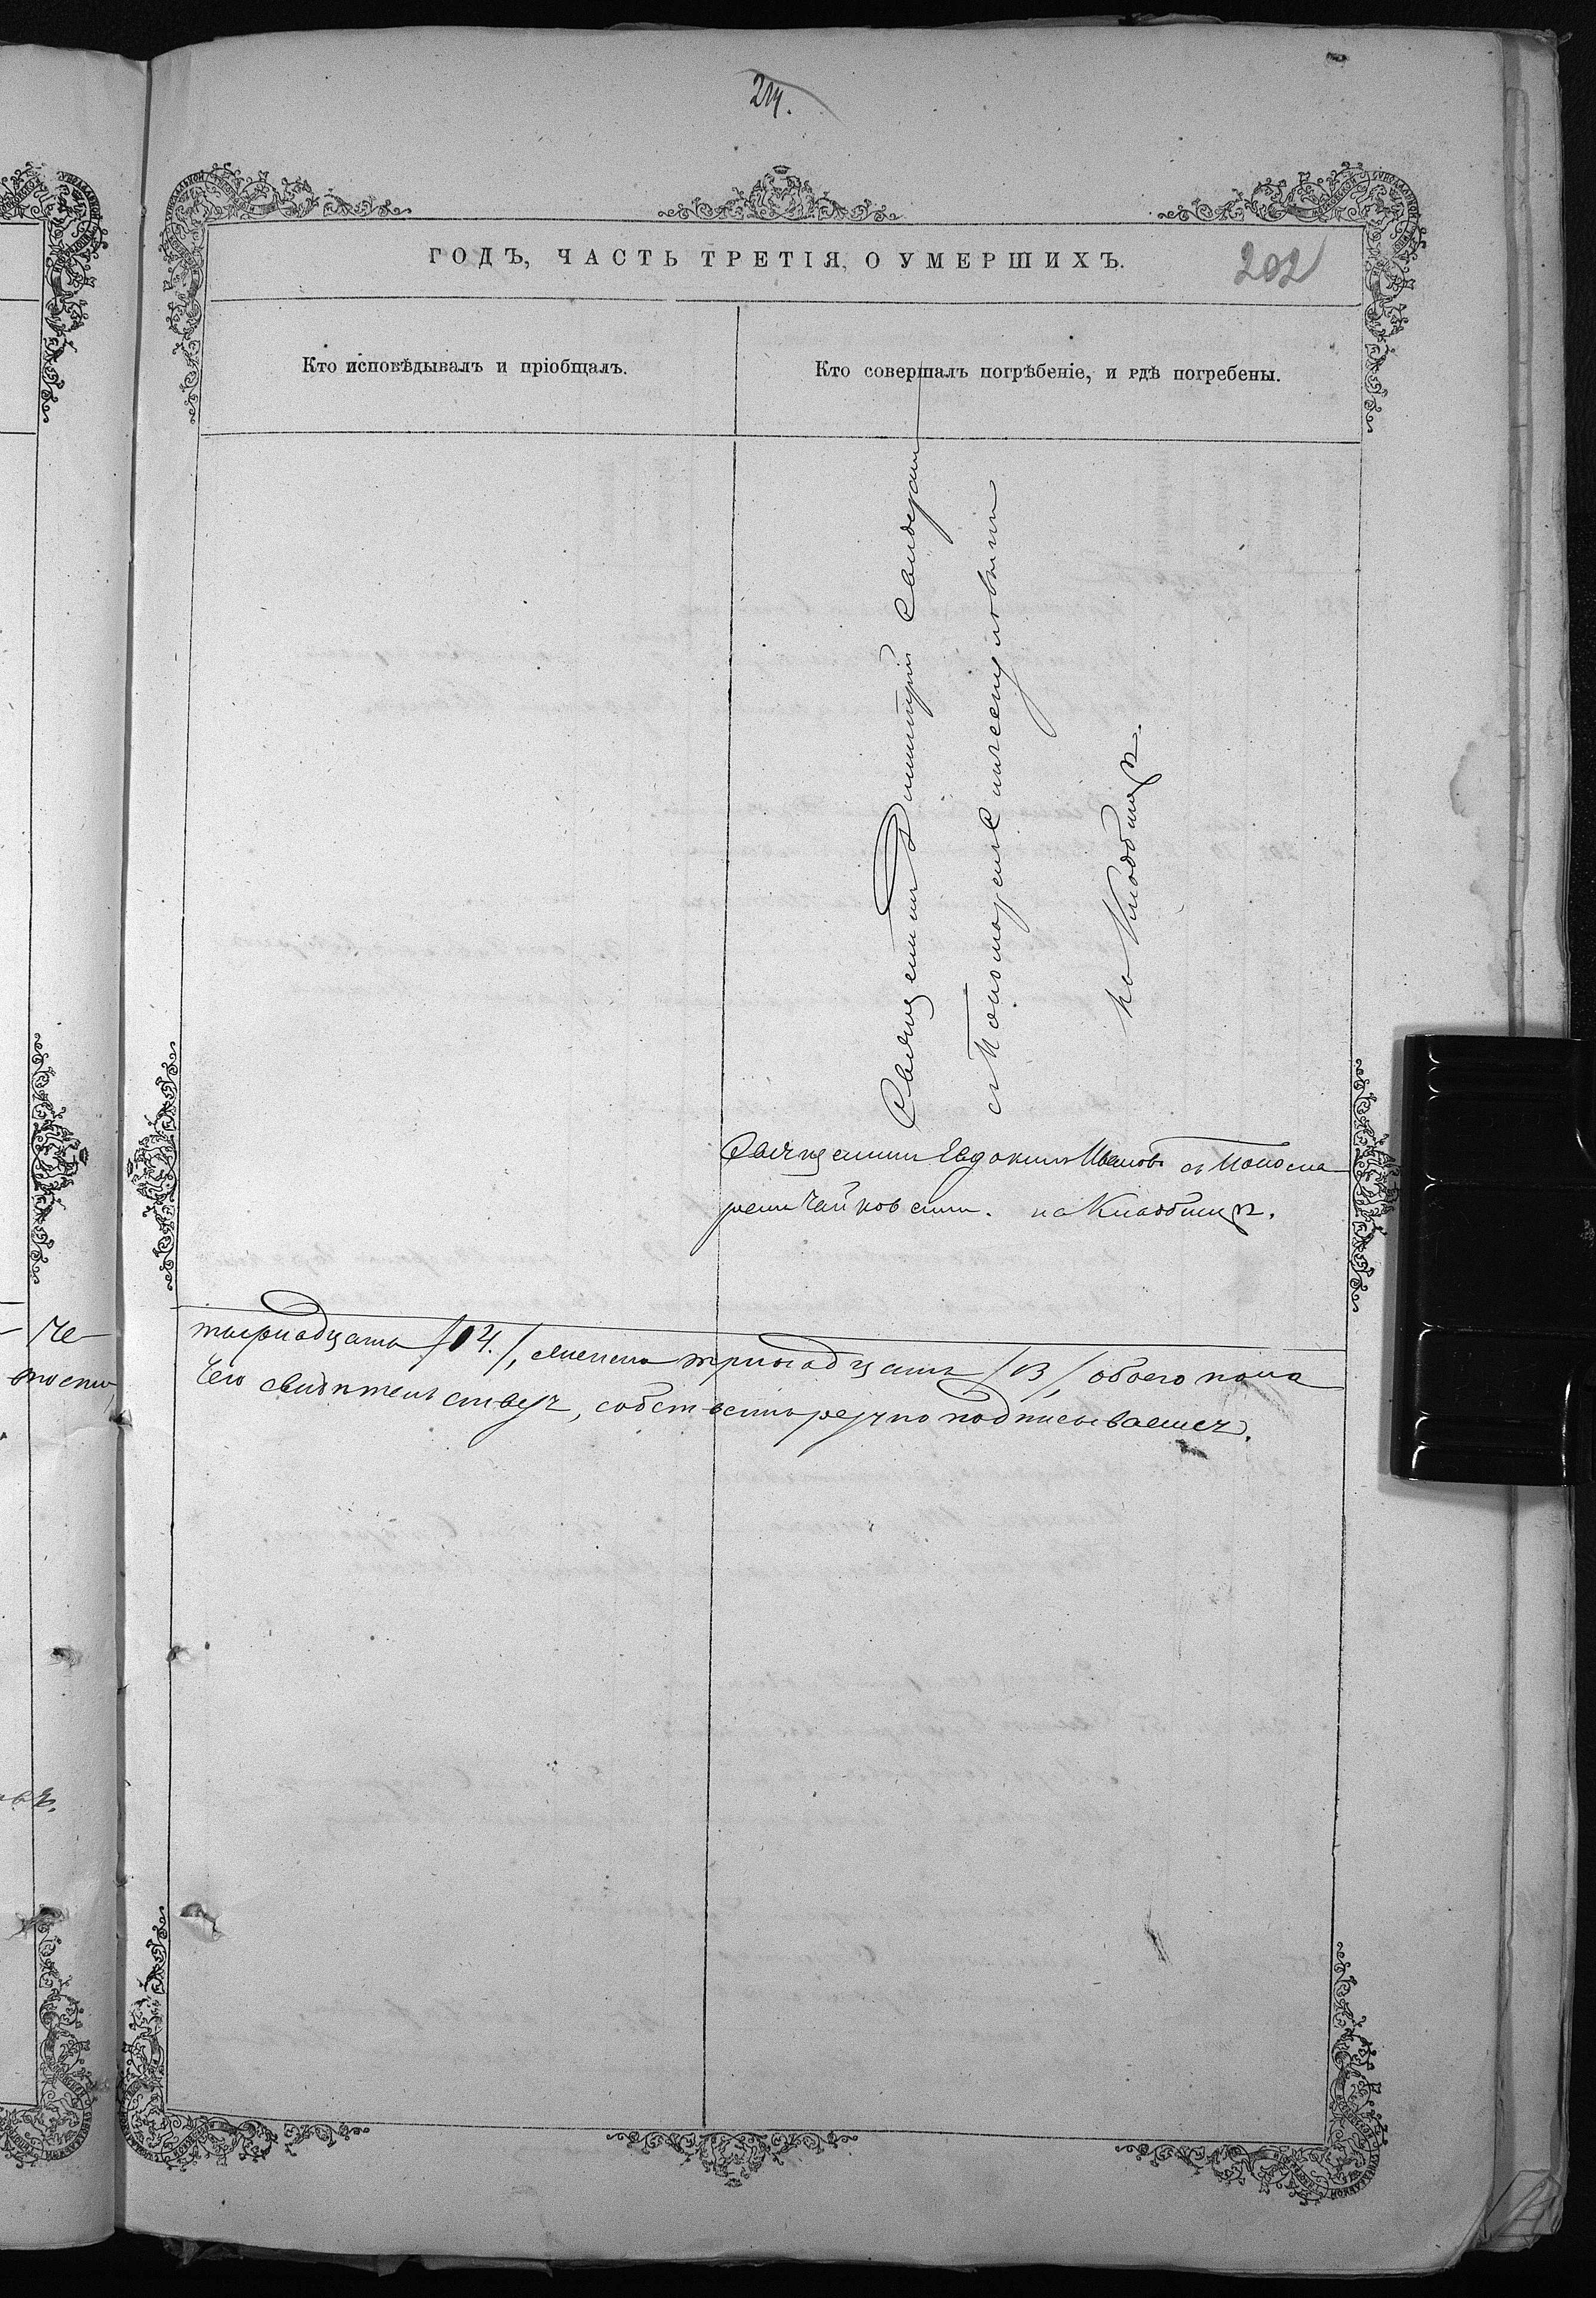 214.
ГОДЪ, ЧАСТЬ ТРЕТІЯ, О УМЕРШИХЪ.
202
Кто исповѣдывалъ и пріобщалъ.
Кто совершалъ погрѣбеніе, и гдѣ погребены.
Священникъ Димитрій
съ Пономаремъ
на Кладбищѣ.
Священникъ Евдокимъ Ивановъ съ Понома
ремъ Чайковскимъ. на Кладбищѣ.
че
тырнадцать /14./, женска тринадцать /13/, обоего пола
Чемъ свидѣтельствуя, собственноручно подписываемся.